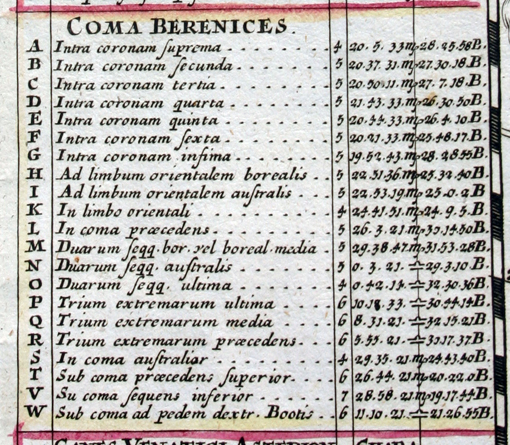 COMA BERENICES
A Intra coronam ſuprema 4 20. 5. 33 ♍ 28. 25. 58 B.
B Intra coronam ſecunda 5 20. 37. 31 ♍ 27. 30. 18 B.
C Intra coronam tertia 5 20. 50. 11 ♍ 27. 7. 18 B.
D Intra coronam quarta 5 21. 43. 33 ♍ 26. 30. 50 B.
E Intra coronam quinta 5 20. 44. 33 ♍ 26. 4. 10 B.
F Intra coronam ſexta 5 20. 21. 33 ♍ 25. 48. 17 B.
G Intra coronam infima 5 19. 52. 43 ♍ 28. 28. 55 B.
H Ad limbum orientalem borealis 5 22. 51. 36 ♍ 25. 32. 40 B.
I Ad limbum orientalem auſtralis 5 22. 53. 19 ♍ 25. 0. 2 B
K In limbo orientali 4 24. 41. 51 ♍ 24. 9. 5 B.
L In coma præcedens 5 26. 3. 21 ♍ 30. 14. 50 B.
M Duarum ſeqq. bor. vel boreal. media 5 29. 38. 47 ♍ 31. 53. 28 B.
N Duarum ſeqq. auſtralis 5 0. 3. 21 ♎ 29. 3. 10 B.
O Duarum ſeqq. ultima 4 0. 42. 14 ♎ 32. 30. 36 B.
P Trium extremarum ultima 6 10. 18. 33 ♎ 30. 44. 14 B.
Q Trium extremarum media 6 8. 31. 21 ♎ 32. 15. 21 B.
R Trium extremarum præcedens 6 5. 55. 21 ♎ 31. 17. 37 B.
S In coma auſtralior 4 29. 35. 21 ♍ 24. 43. 40 B.
T Sub coma præcedens ſuperior 6 26. 44. 21 ♍ 20. 22. 0 B.
V Su coma ſequens inferior 7 28. 58. 21 ♍ 19. 17. 44 B.
W Sub coma ad pedem dextr. Bootis 6 11. 10. 21 ♎ 21. 26. 55 B.